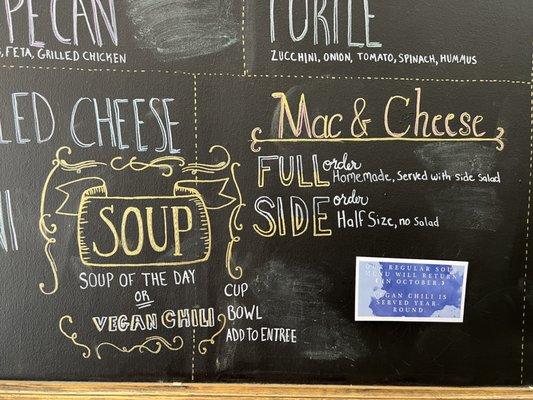 PECAN
, FETA, GRILLED CHICKEN
TURTLE
ZUCCHINI, ONION, TOMATO, SPINACH, HUMMUS
LED CHEESE
NI
SOUP
SOUP OF THE DAY
OR
VEGAN CHILI
CUP
BOWL
ADD TO ENTREE
Mac & Cheese
FULL order
Homemade, Served with side Salad
SIDE order
Half Size, no Salad
OUR REGULAR SOUP
MENU WILL RETURN
IN OCTOBER.
VEGAN CHILI IS
SERVED YEAR-
ROUND